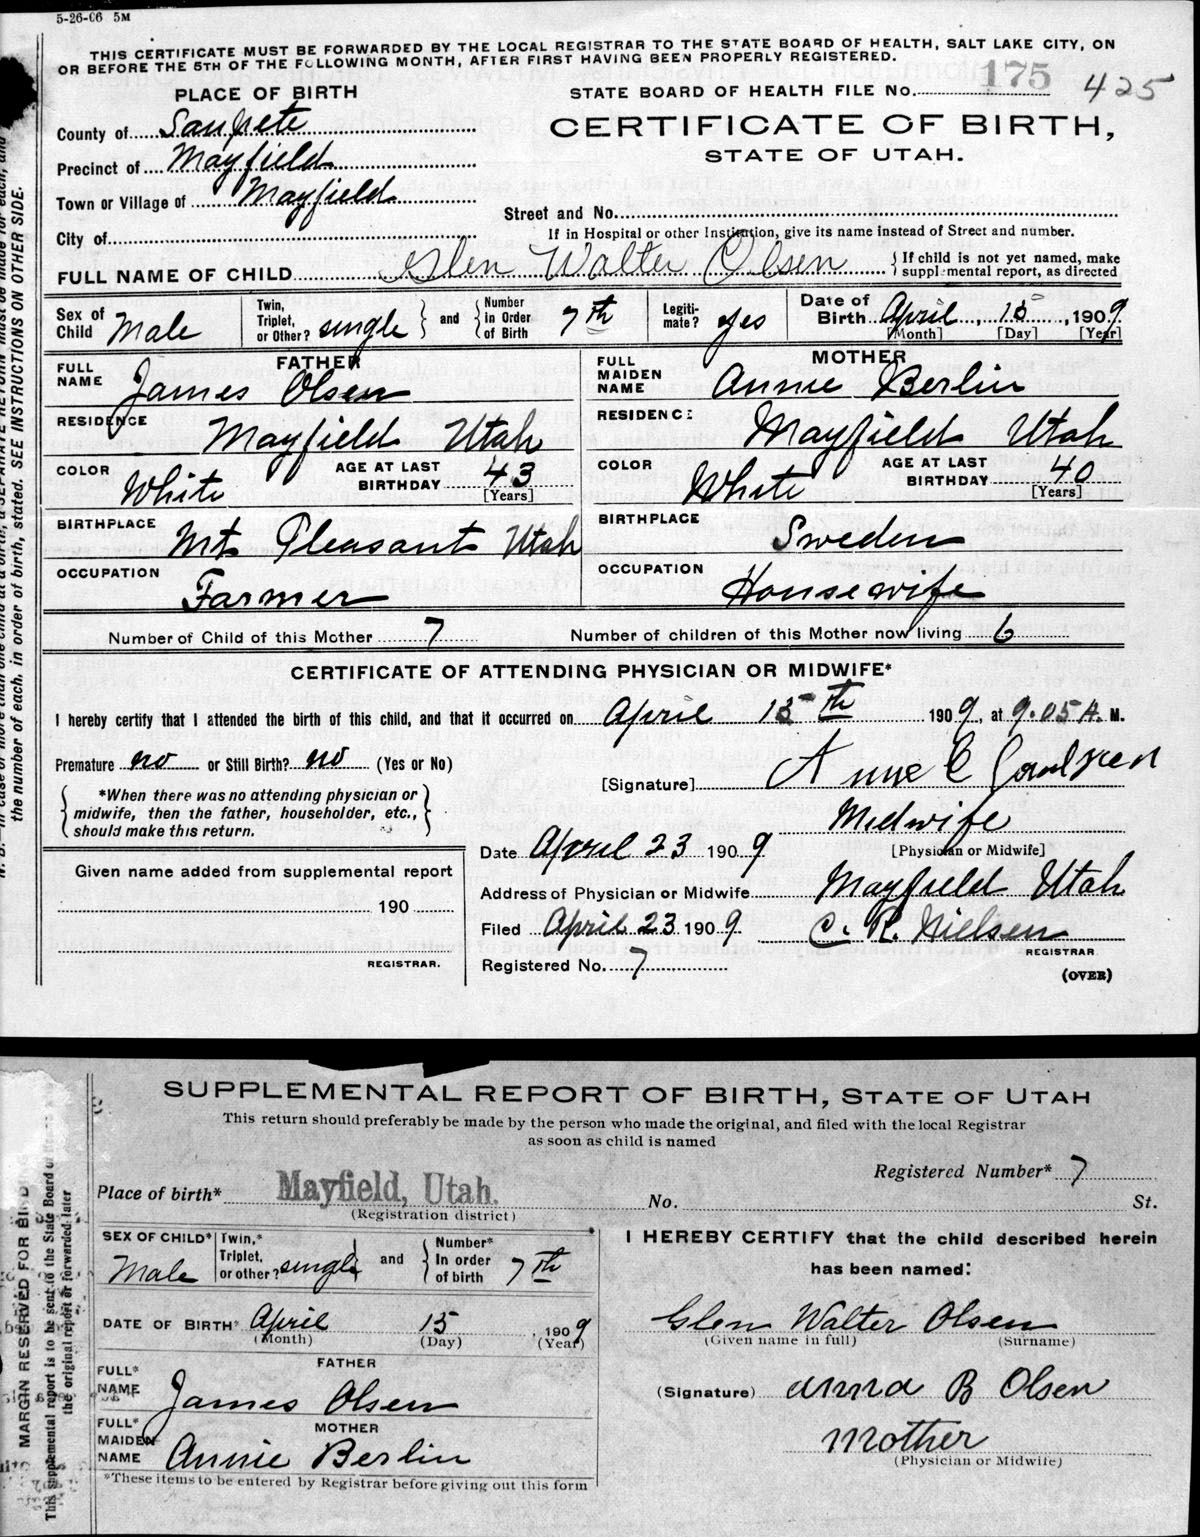 5-26-06 5M
THIS CERTIFICATE MUST BE FORWARDED BY THE LOCAL REGISTRAR TO THE STATE BOARD OF HEALTH, SALT LAKE CITY, ON
OR BEFORE THE 5TH OF THE FOLLOWING MONTH, AFTER FIRST HAVING BEEN PROPERLY REGISTERED.
PLACE OF BIRTH
STATE BOARD OF HEALTH FILE No. 175 425
County of Sanpete
CERTIFICATE OF BIRTH,
Precinct of Mayfield
STATE OF UTAH.
Town or Village of Mayfield
Street and No.
City of
If in Hospital or other Institution, give its name instead of Street and number.
FULL NAME OF CHILD Glen Walter Olsen { If child is not yet named, make supplemental report, as directed
Sex of Child Male
Twin, Triplet, or Other? single } and { Number in Order of Birth 7th
Legitimate? yes
Date of Birth April, 15, 1909
[Month] [Day] [Year]
FATHER
FULL NAME James Olsen
MOTHER
FULL MAIDEN NAME Annie Berlin
RESIDENCE Mayfield Utah
RESIDENCE Mayfield Utah
COLOR White AGE AT LAST BIRTHDAY 43 [Years]
COLOR White AGE AT LAST BIRTHDAY 40 [Years]
BIRTHPLACE Mt Pleasant Utah
BIRTHPLACE Sweden
OCCUPATION Farmer
OCCUPATION Housewife
Number of Child of this Mother 7 Number of children of this Mother now living 6
CERTIFICATE OF ATTENDING PHYSICIAN OR MIDWIFE*
I hereby certify that I attended the birth of this child, and that it occurred on April 15th 1909, at 9.05 A. M.
Premature no or Still Birth? no (Yes or No)
[Signature]
*When there was no attending physician or
midwife, then the father, householder, etc.,
should make this return.
Midwife
[Physician or Midwife]
Date April 23 1909
Given name added from supplemental report
190
REGISTRAR.
Address of Physician or Midwife Mayfield Utah
Filed April 23 1909 C. R. Nielsen
REGISTRAR
Registered No. 7
(OVER)
the number of each, in order of birth, stated. SEE INSTRUCTIONS ON OTHER SIDE.
SUPPLEMENTAL REPORT OF BIRTH, STATE OF UTAH
This return should preferably be made by the person who made the original, and filed with the local Registrar
as soon as child is named
Registered Number* 7
Place of birth* Mayfield, Utah. No. St.
(Registration district)
SEX OF CHILD* Male
Twin,* Triplet, or other? single } and { Number* In order of birth 7th
DATE OF BIRTH* April 15, 1909
(Month) (Day) (Year)
FATHER
FULL* NAME James Olsen
MOTHER
FULL* MAIDEN NAME Annie Berlin
*These items to be entered by Registrar before giving out this form
I HEREBY CERTIFY that the child described herein
has been named:
Glen Walter Olsen
(Given name in full) (Surname)
(Signature) Anna B Olsen
Mother
(Physician or Midwife)
This supplemental report is to be sent to the State Board of
the original report or forwarded later